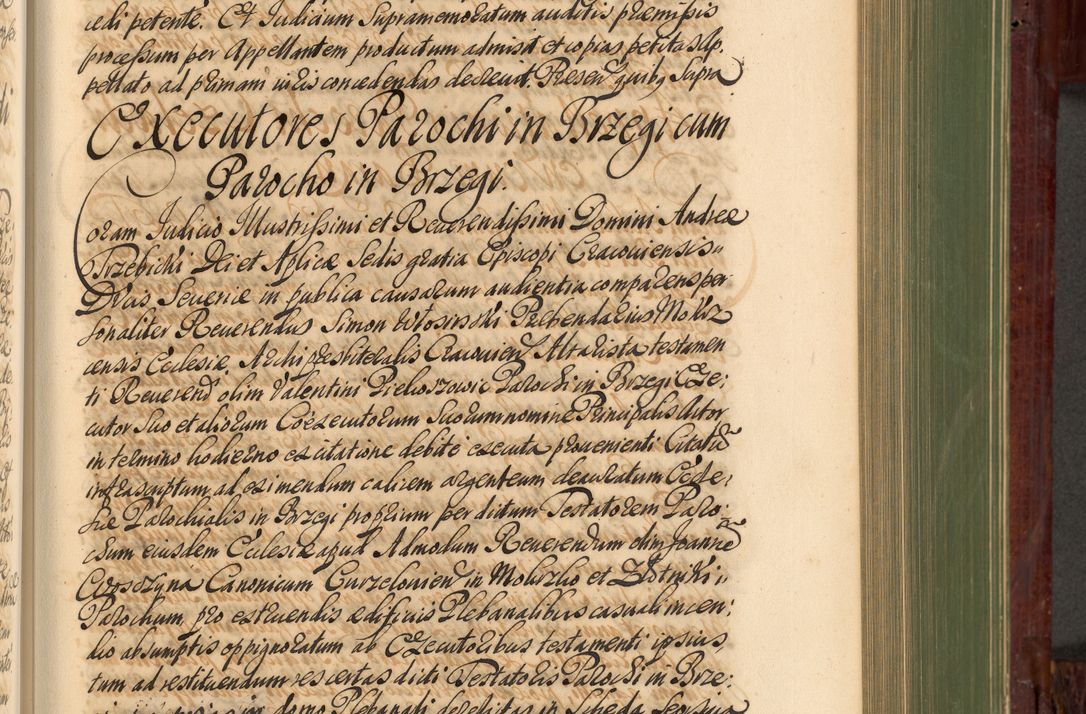 cedi petente. Et Judicium Supramemoratum auditis præmissis
processum per Appellantem productum admisit et copias petitas Ap,
pellato ad primam iuris concedendas decreuit. Presen quibg Supra
Executores Parochi in Brzegi cum
Parocho in Brzegi.
Coram Judicio Illustrissimi et Reuerendissimi Domini Andreæ
Trzebicki Dei et Aplicæ Sedis gratia Episcopi Cracouiensis
Ducis Seueriæ in publica causarum audientia comparens per
sonaliter Reuerendus Simon Præbendarius Mokrz
censis Ecclesiæ, Archipresbiteralis Cracouien Altarista testamen
ti Reuerend olim Valentini Pielioszowic Parochi in Brzegi Exe:
cutor suo et aliorum Coexecutorum suorum nomine Principalis Actor
in termino hodierno ex citatione debite executa proueniente Citatum
infrascriptum ad eximendum calicem argenteum deauratum Eccle:
siæ Parochialis in Brzegi proprium per dictum Testatorem Paro:
chum eiusdem Ecclesiæ apud Admodum Reuerendum olim Joannem
Canonicum Curzelouien in Mokrzko et Złotniki
Parochum, pro extruendis ædificiis Plebanalibus casuali incen:
dio absumptis oppignoratum ab Executoribus testamenti ipsius,
tum ad restituendum res certas dicti Testatoris Parochi in Brze:
in domo Plebanali derelictas in Scheda